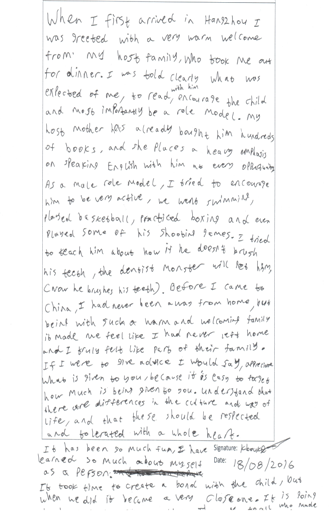 When I first arrived in Hangzhou I
was greeted with a very warm welcome
from my host family, who took me out
for dinner. I was told clearly what was
expected of me, to read with him, encourage the child
and most importantly be a role model. My
host mother has already bought him hundreds
of books, and she places a heavy emphasis
on speaking English with him at every opportunity
As a male role model, I tried to encourage
him to be very active, we went swimming,
played basketball, practised boxing and even
played some of his shooting games. I tried
to teach him about how if he doesn't brush
his teeth, the dentist monster will get him,
(now he brushes his teeth). Before I came to
China, I had never been away from home, but
being with such a warm and welcoming family
it made me feel like I had never left home
and I truly felt like part of their family.
If I were to give advice I would say, appreciate
what is given to you, because it is easy to forget
how much is being given to you. Understand that
there are differences in the culture and way of
life, and that these should be respected
and tolerated with a whole heart.
It has been so much fun, I have
learned so much about myself
as a person.
Signature:
Date: 18/08/2016
It took time to create a bond with the child, but
when we did it became a very close one. It is being
who made